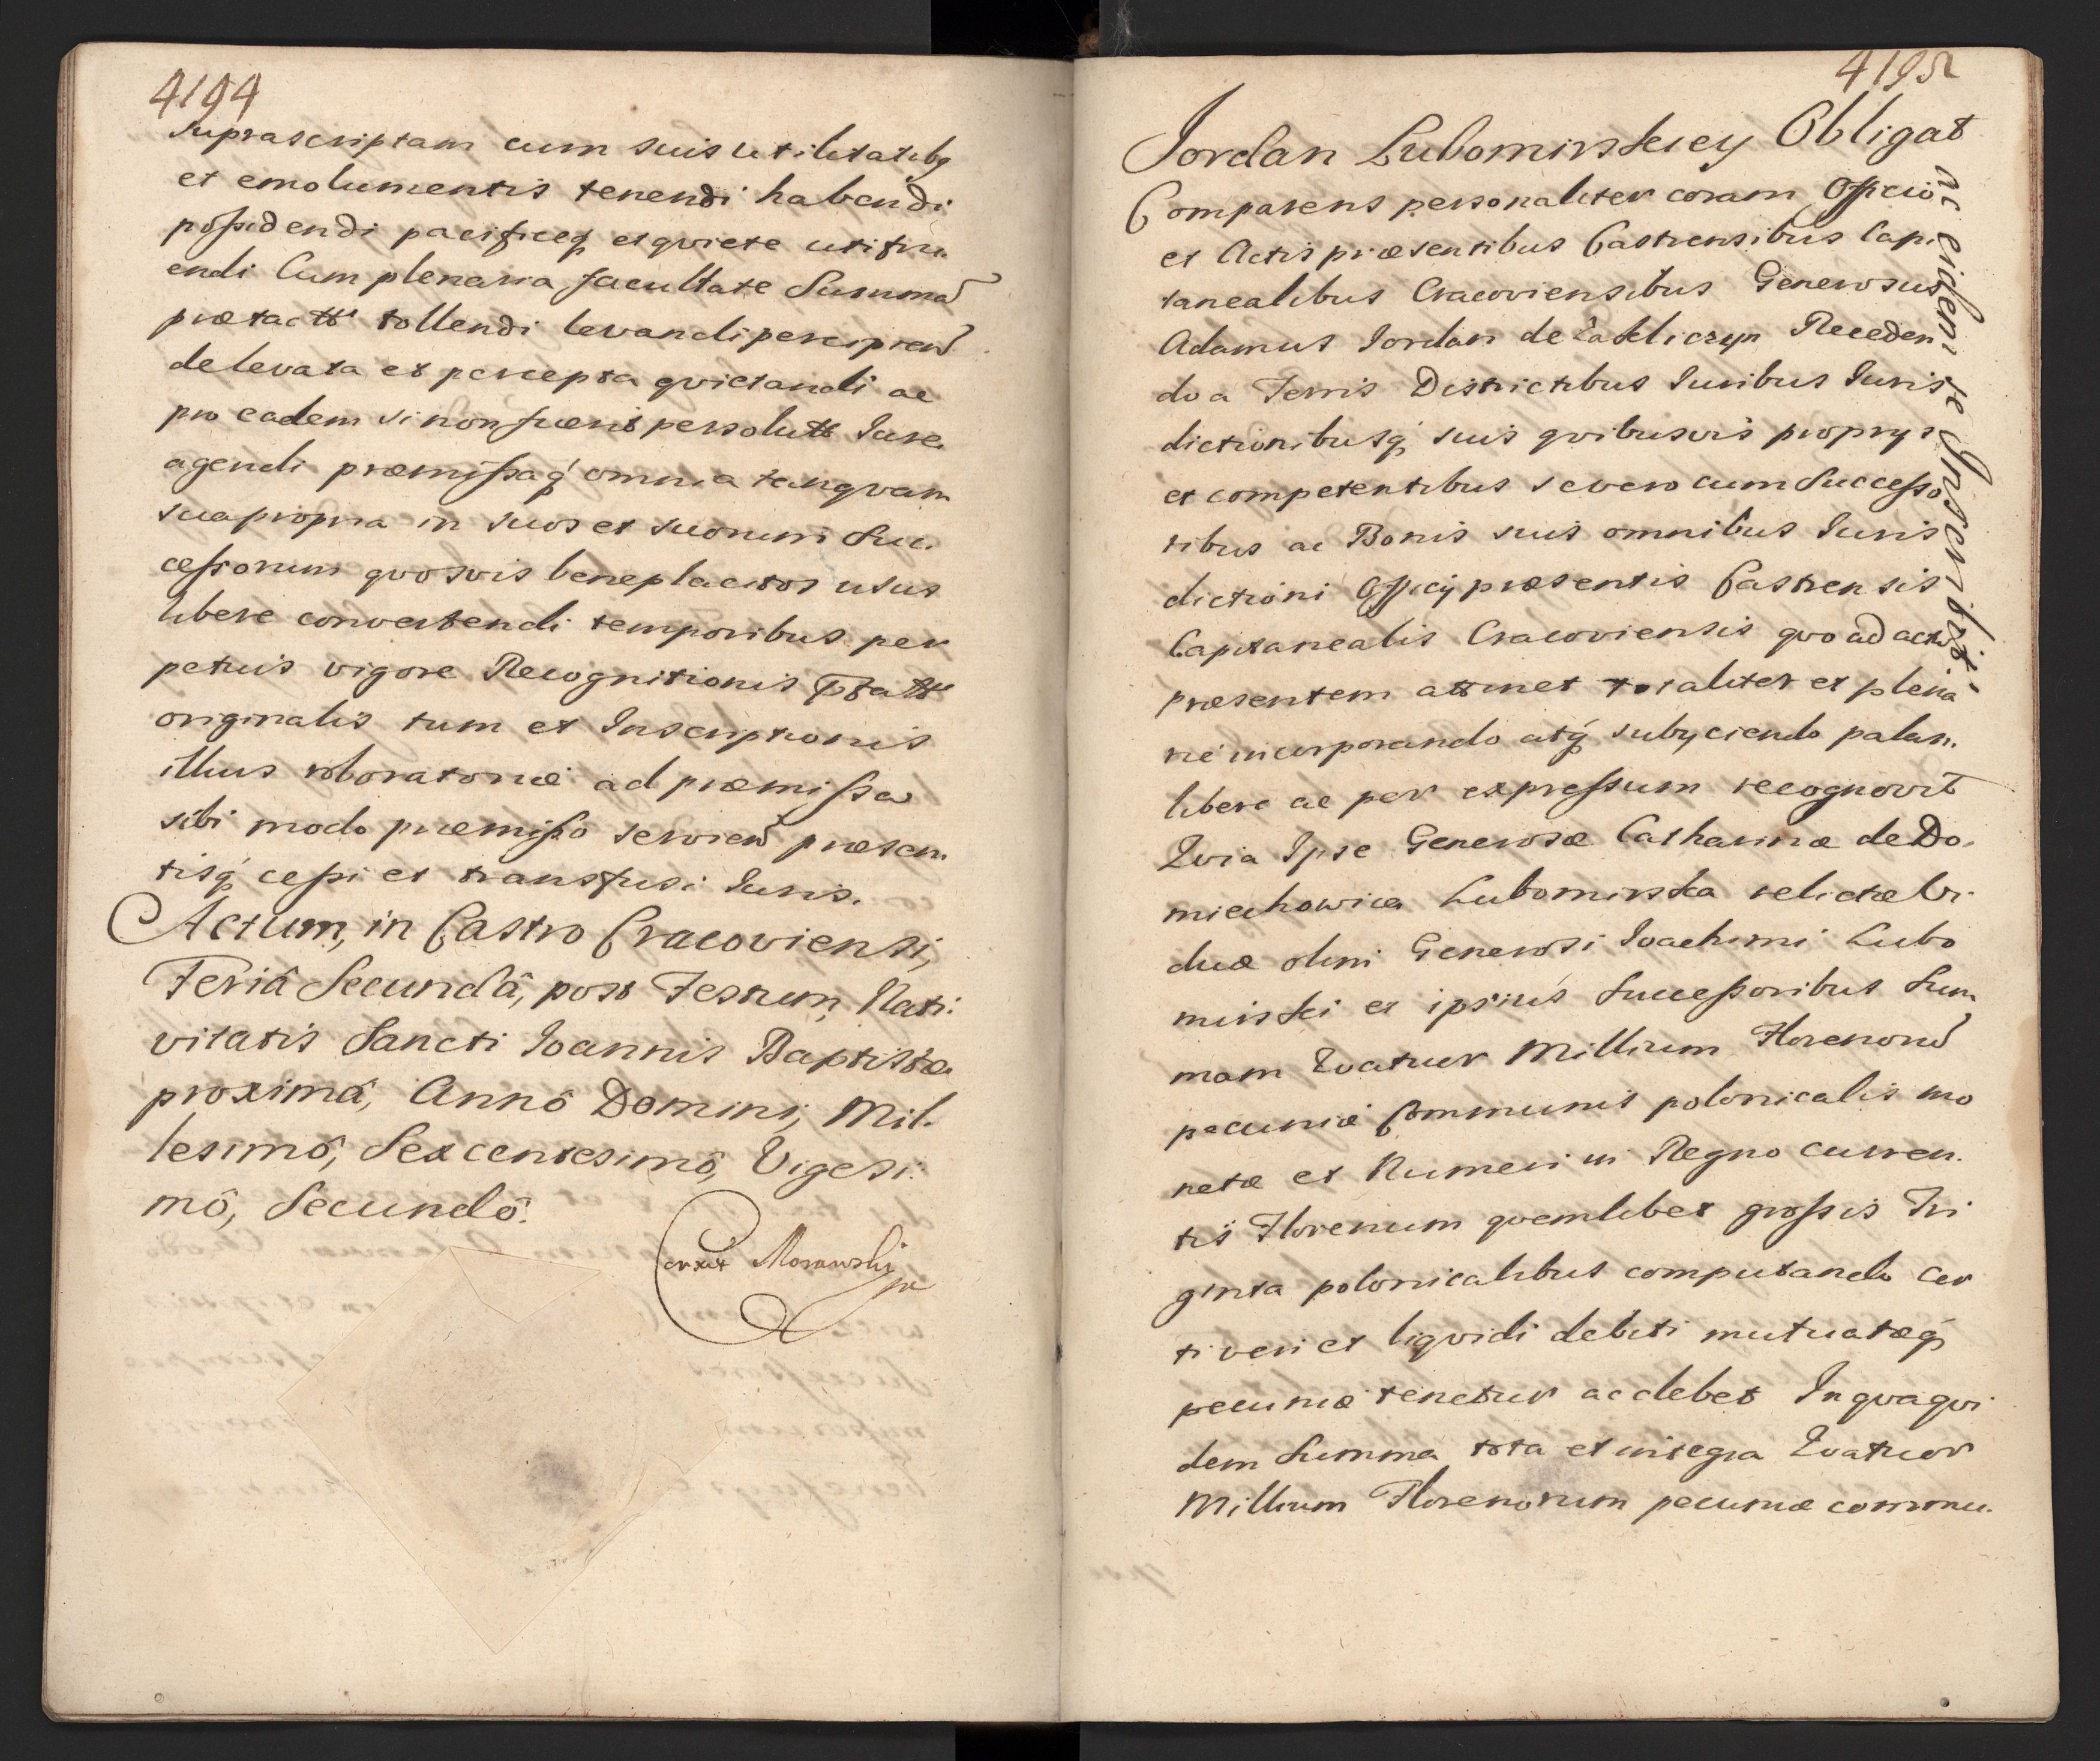 4194
suprascriptam cum suis utilitatibq
et emolumentis tenendi habendi
possidendi pacificeq etqviete utifru
endi Cum plenaria facultate Summa
prætactt tollendi levandi percipien
delevata et percepta qvietandi ac
pro eadem si non fuerit persolutt Iure
agendi præmissaq omnia tanqvam
sua propria in suos et suorum Suc
cessorum qvosvis beneplacitos usus
libere convertendi temporibus per
petuis vigore Recognitionis
originalis tum et Inscriptionis
illius roboratoriæ ad præmissa
sibi modo præmisso servien præsen
tisq cessi et transfusi Iuris.
Actum, in Castro Cracoviensi,
Feriâ Secundâ, post Festum, Nati:
vitatis Sancti Ioannis Baptistæ
proximâ, Annô Domini, Mil.
lesimô, Sexcentesimô, Vigesi:
mô, Secundô.
Morawski
4195
Jordan Lubomirskiey Obligat
ac eidem se Inscribit.
Comparens personaliter coram Officiô
et Actis præsentibus Castrensibus Capi
tanealibus Cracoviensibus Generosus
Adamus Iordan de Zakliczyn Receden
do a Terris Districtibus Iuribus Iuris
dictionibusq suis qvibusvis proprys
et competentibus severo cum Successo
ribus ac Bonis suis omnibus Iuris
dictioni Officÿ præsentis Castrensis
Capitanealis Cracoviensis qvo ad actu
præsentem attinet totaliter et plena
rié incorporando atq subyciendo palam
libere ac per expressum recognovit
Qvia Ipse Generosæ Catharinæ de Do.
miechowice Lubomirska relictæ Vi
duæ olim Generosi Ioachimi Lubo
mirski et ipsius Successoribus Sum
mam Qvatuor Millium Florenoru
pecuniæ Communis polonicalis mo
netæ et Numeri in Regno curren.
tis Florenum qvemlibet grossis Tri
ginta polonicalibus computando cer
ti veri et liqvidi debiti mutuatæq
pecuniæ tenetur ac debet In qva qvi
dem Summa tota et integra Qvatuor
Millium Florenorum pecuniæ commu.